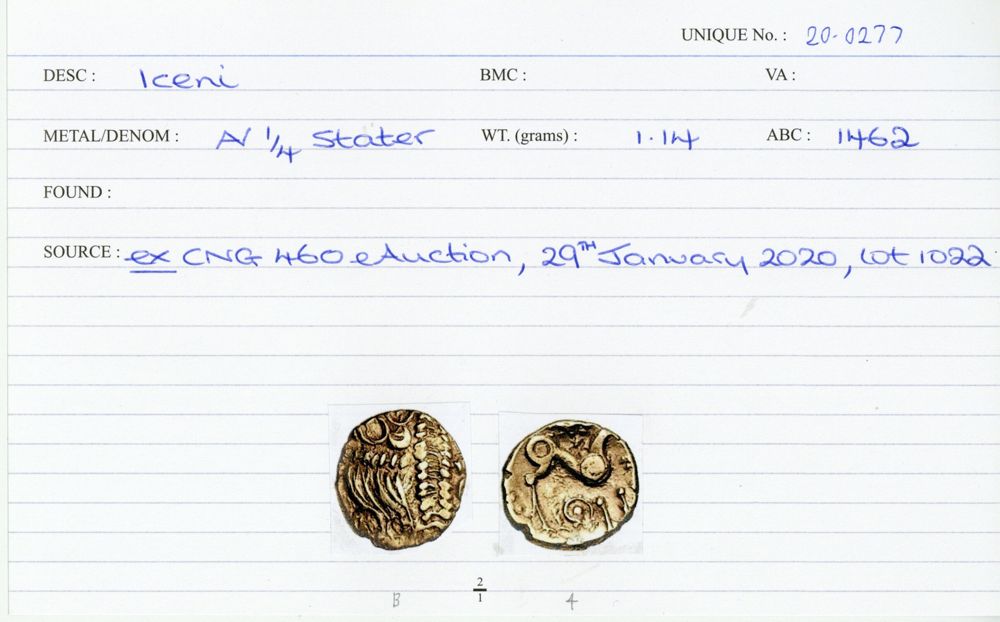 UNIQUE No. : 20-0277
DESC : Iceni BMC : VA :
METAL/DENOM : AV 1/4 Stater WT. (grams) : 1.14 ABC : 1462
FOUND :
SOURCE : ex CNG 460 eAuction, 29TH January 2020, Lot 1022.
2
B 1 4